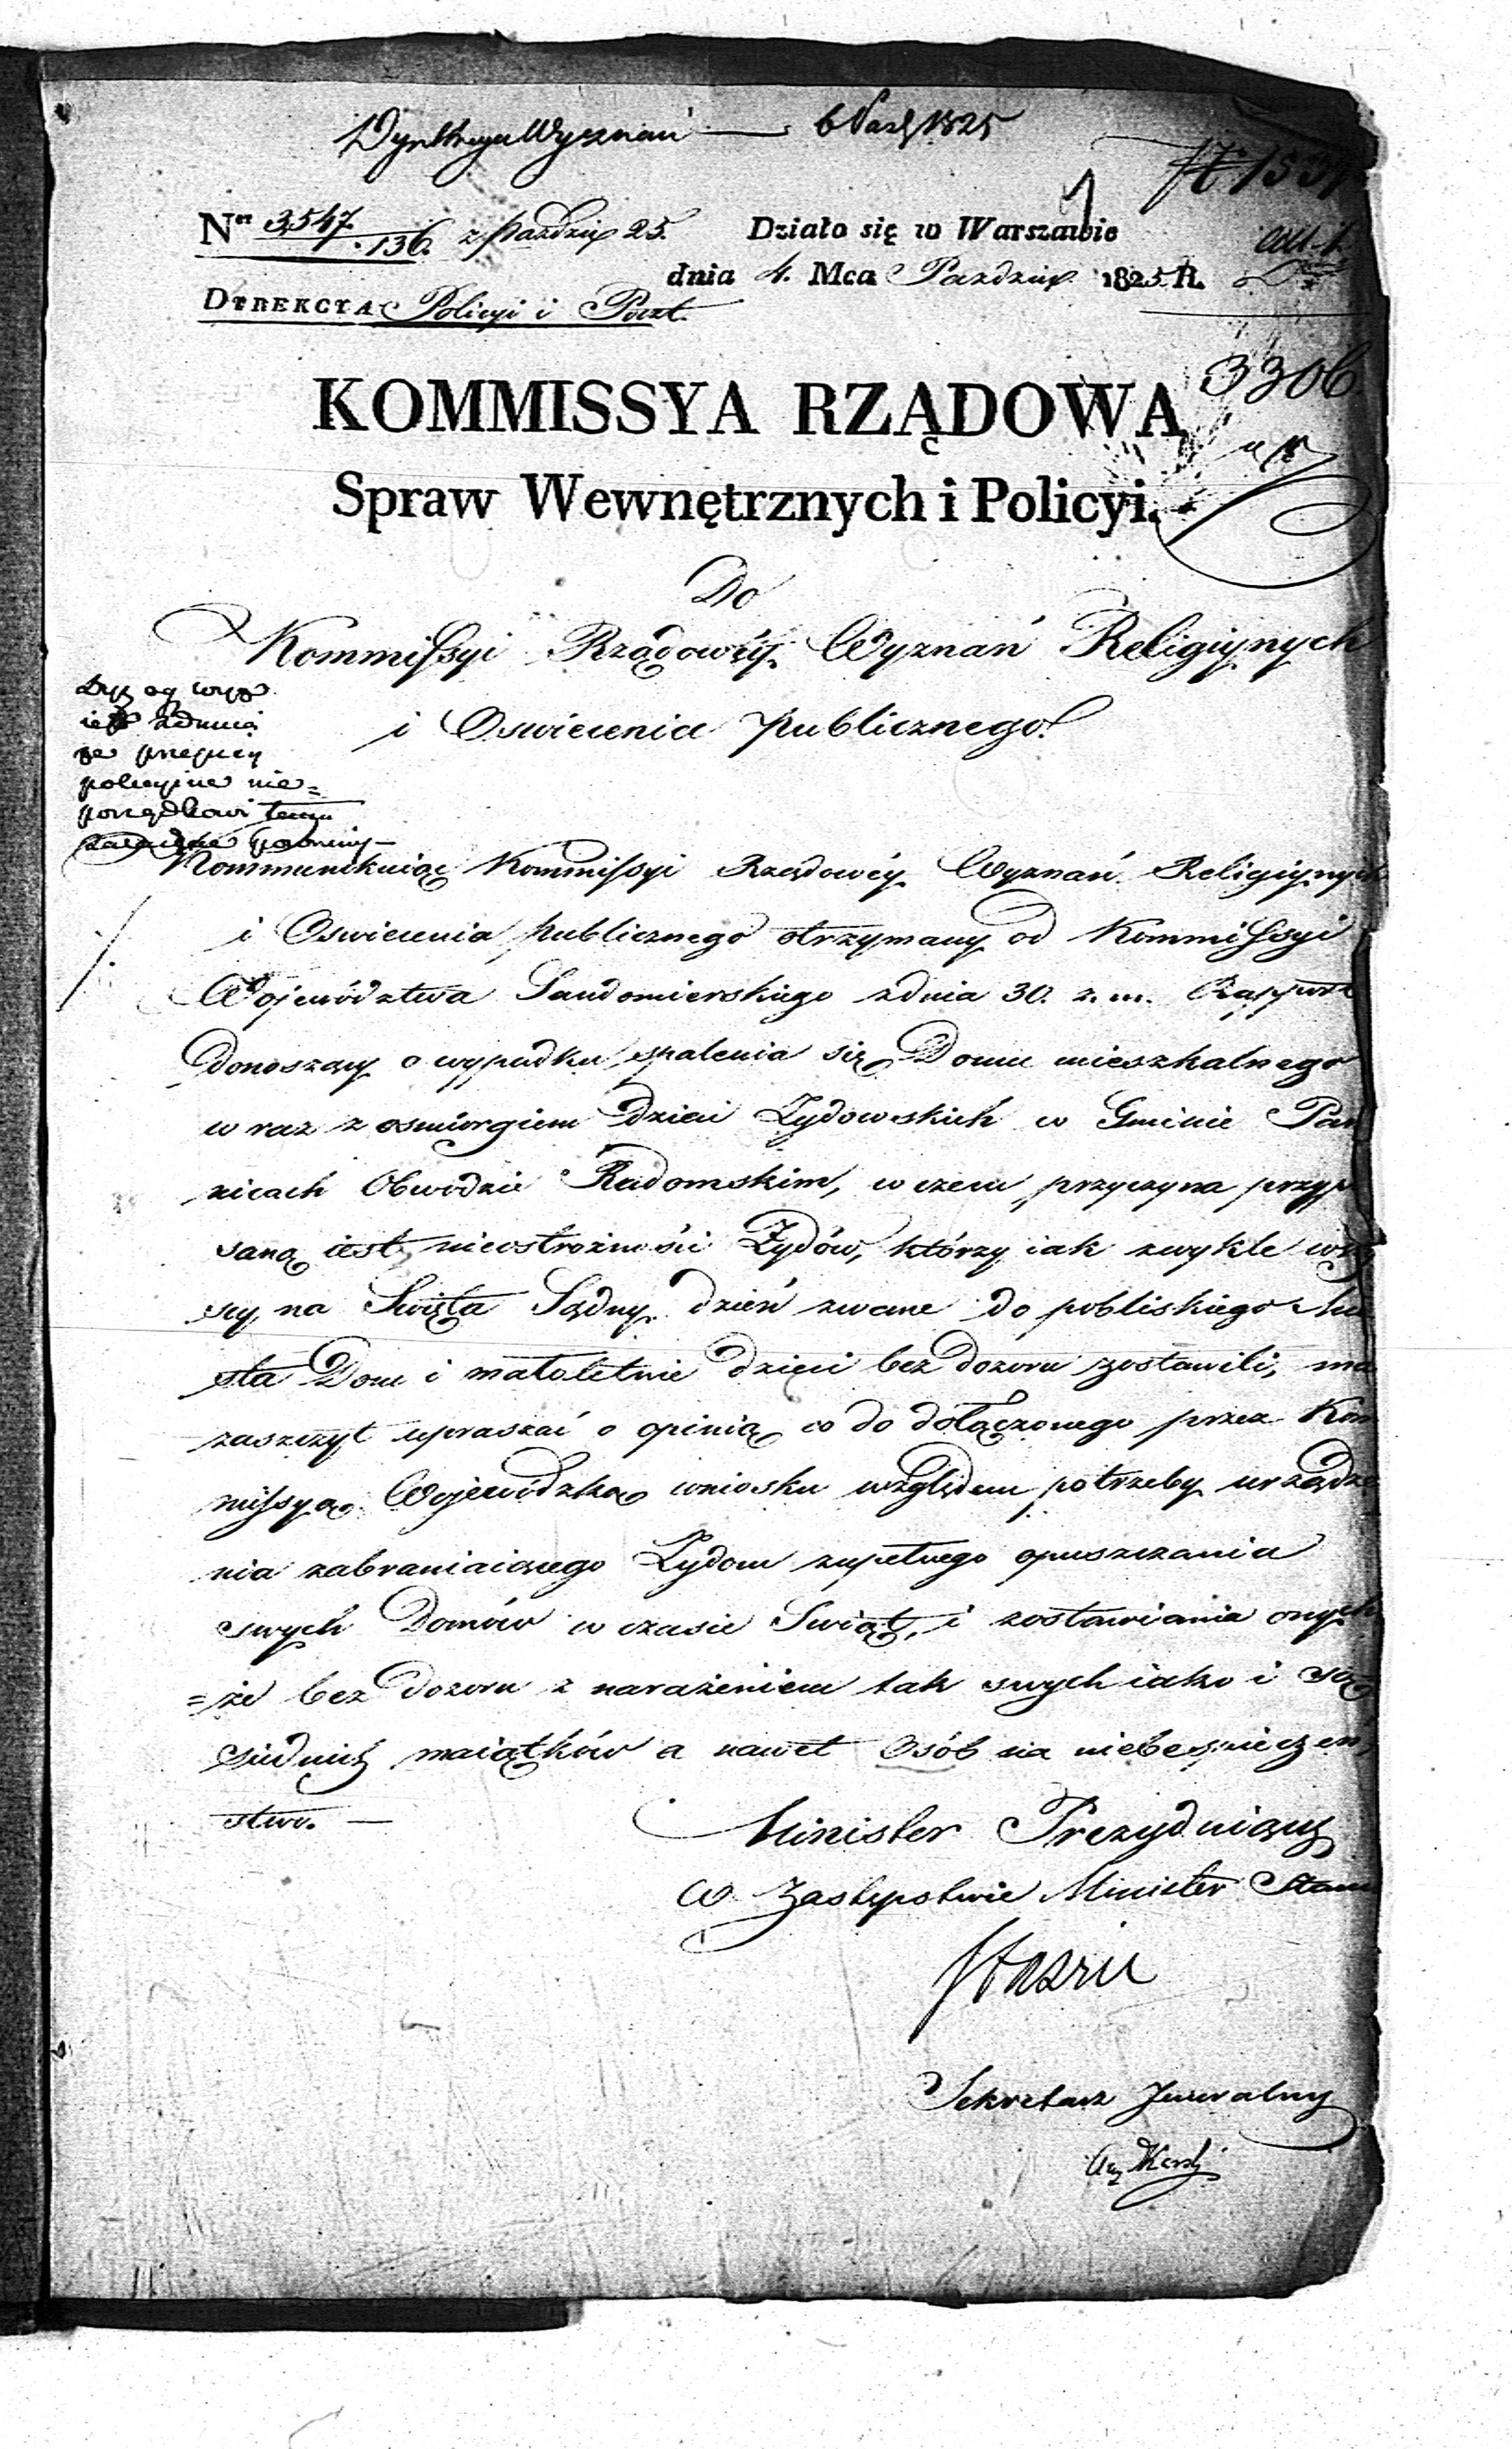 Dyrekcya Wyznań — 6 Paźd 1825
1
Ner 3547. / 136. z Paździer 25. Działo się w Warszawie
dnia 4. Mca Paździer. 1825. R.
DYREKCYA Policyi i Poczt.
3306
KOMMISSYA RZĄDOWA
Spraw Wewnętrznych i Policyi.
Do
Kommissyi Rządowéy Wyznań Religiynych
i Oswiecenia publicznego.
zdania
że przepisy
policyjne nie=
porządkowi temu
Kommunikuiąc Kommissyi Rządowéy Wyznań Religiynych
i Oswiecenia publicznego otrzymany od Kommissyi
Województwa Sandomierskiego z dnia 30. z. m. Rapport
donoszący o wypadku spalenia się Domu mieszkalnego
wraz z osmiorgiem dzieci Żydowskich w Gminie Pa
nicach Obwodzie Radomskim, w czem przyczyna przypi
saną iest nieostrożności Żydów, którzy iak zwykle wy
scy na Swięta Sądny dzień zwane do pobliskiego Mia
sta Dom i małoletnie dzieci bez dozoru zostawili, ma
zaszczyt upraszać o opinią co do dołączonego przez Kom
missyą Wojewódzką wniosku względem potrzeby urządze
nia zabraniaiącego Żydom zupełnego opuszczania
swych Domów w czasie Swiąt, i zostawiania onych
=że bez dozoru z narażeniem tak swych iako i są
siednich maiątków a nawet Osób na niebespieczeń
stwo. —
Minister Prezyduiący
w Zastępstwie Minister Stanu
Staszic
Sekretarz Jeneralny